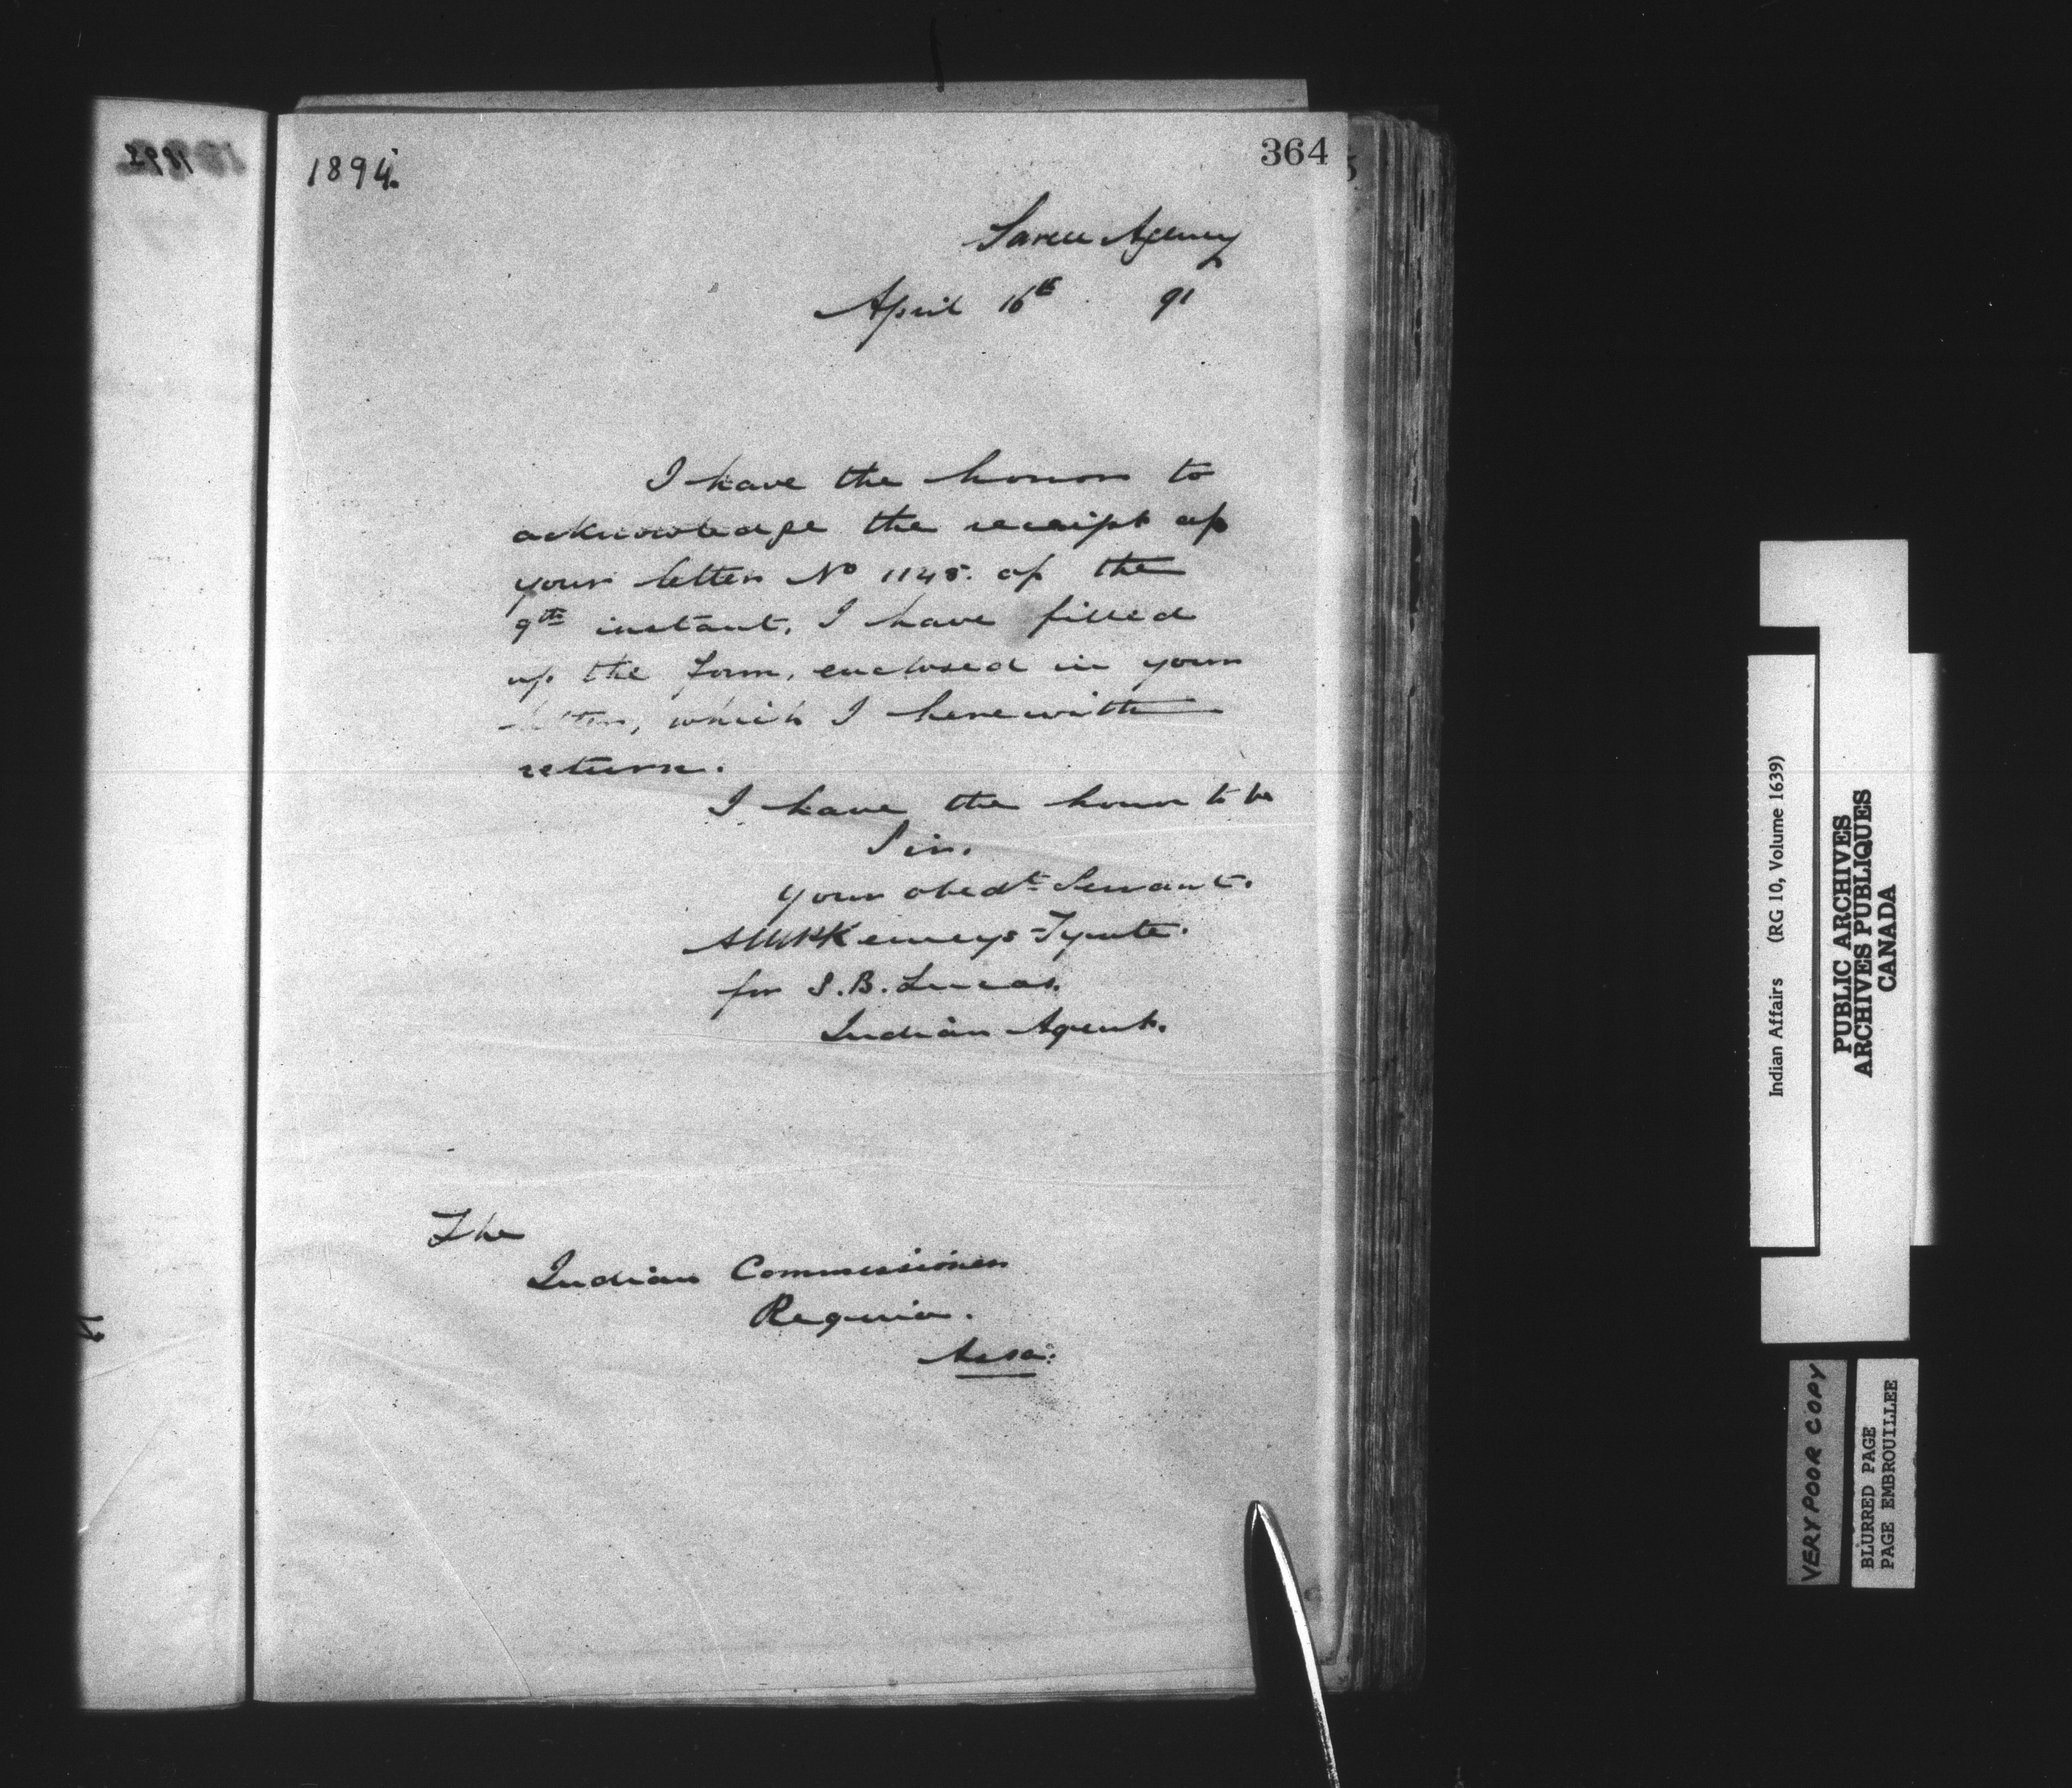 364
1894.
Sarcee Agency
April 16th 91
I have the honor to
acknowledge the receipt of
your letter No 1145. of the
9th instant. I have filled
up the form, enclosed in your
letter, which I herewith
return.
I have the honor to be
Sir.
your obedt Servant.
Kemeys-Tynte.
for S.B. Lucas.
Indian Agent.
The
Indian Commissioner
Regina.
Assa:
Indian Affairs (RG 10, Volume 1639)
PUBLIC ARCHIVES
ARCHIVES PUBLIQUES
CANADA
VERY POOR COPY
BLURRED PAGE
PAGE EMBROUILLEE